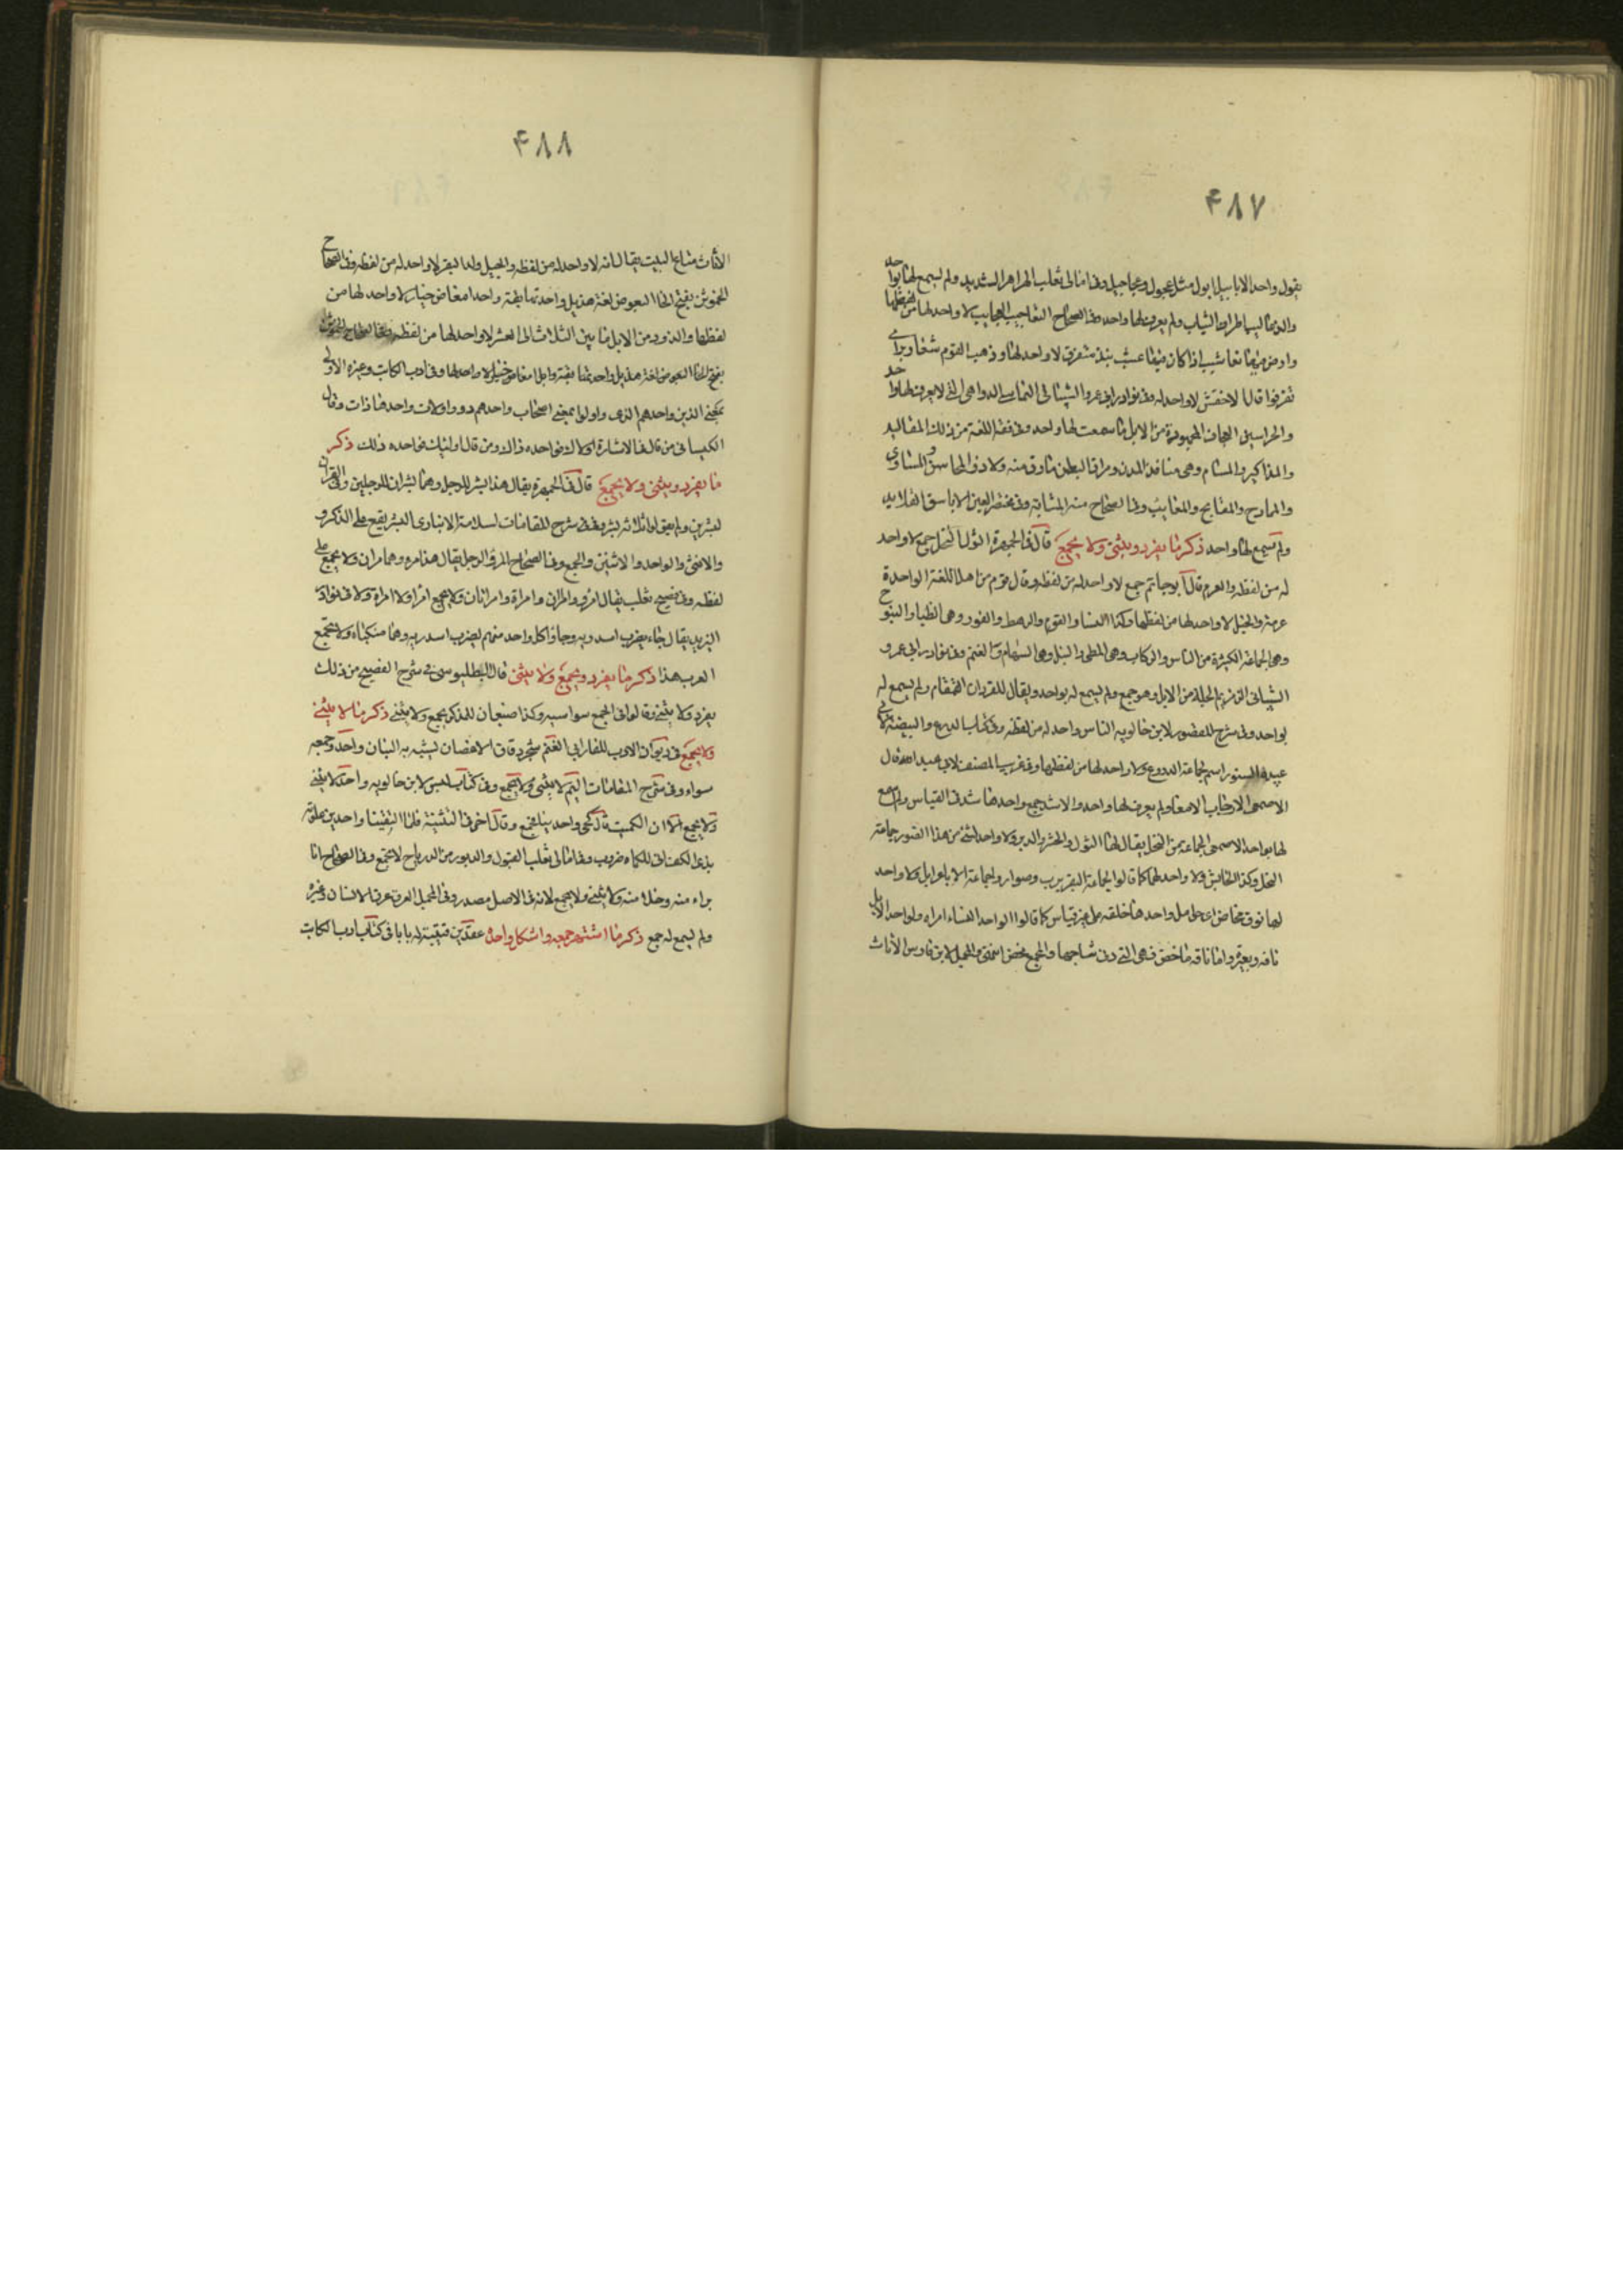 ٤٨٧
يقول واحد الابابيل ابول مثل عجول وعجاجيل وفى امالى ثعلب الهزاهز الشديد ولم يسمع لها بواحد
والذعاليب اطراف الثياب ولم يعرف لها واحد وفى الصحاح التعاجيب العجايب لا واحد لها من لفظها
وارض فيها تعاشيب اذا كان فيها عشب نبذ متفرق لا واحد لها وذهب القوم شعارير اى
تفرقوا قال الاخفش لا واحد له وفى نوادر ابى عمرو الشيبانى التماسى الدواهى التى لا يعرف لها واحد
والحراسين العجاف المجهودة من الابل ما سمعت لها واحد وفى فقه اللغة من ذلك المقاليد
والمذاكير والمسام وهى منافذ البدن ومراق البطن ما رق منه ولان والمحاسن والمساوى
والممادح والمقابح والمعايب وفى الصحاح منه المشابه وفى مختصر العين الاباسق القلايد
ولم يسمع لها واحد ذكر ما يفرد ويثنى ولا يجمع قال فى الجمهرة الثول النحل جمع لا واحد
له من لفظه والعرم قال ابو حاتم جمع لا واحد له من لفظه وقال قوم من اهل اللغة الواحدة
عرمة والخيل لا واحد لها من لفظها وكذا النسا والقوم والرهط والفور وهى الظبا والتنوخ
وهى الجماعة الكثيرة من الناس والركاب وهى المطى والنبل وهى السهام والغنم وفى نوادر ابى عمرو
الشيبانى الزمزيم الجلة من الابل وهو جمع ولم يسمع له بواحد ويقال للقردان القمقام ولم يسمع له
بواحد وفى شرح المقصور لابن خالويه الناس واحد له من لفظه وفى كتاب الدرع والبيضة لابى
عبيدة السنور اسم لجماعة الدروع ولا واحد لها من لفظها وفى غريب المصنف لابى عبيد قال
الاصمعى الارطاب الامعا ولم يعرف لها واحد والاشد جمع واحدها شد فى القياس ولم اسمع
لها بواحد الاصمعى الجماعة من النحل يقال لها الثول والخشرم والدبر ولا واحد لشئ من هذا الصور جماعة
النخل وكذا الحايش ولا واحد لهما كما قالوا لجماعة البقر ربرب وصوار ولجماعة الابل ابل ولا واحد
لها نوق مخاض اى حوامل واحدها خلفة على غير قياس كما قالوا لواحد النساء امراة ولواحد الابل
ناقة وبعير واما ناقة ماخض فهى التى دنا نتاجها والجمع مخض انتهى وفى المجمل لابن فارس الاثاث
٤٨٨
الاثاث متاع البيت يقال انه لا واحد له من لفظه والجيل ولد البقر لا واحد له من لفظه وفى الصحاح
الخموش بفتح الخا البعوض لغة هذيل واحدتها بقة واحدا مغاض خيار لا واحد لها من
لفظها والذود من الابل ما بين الثلاث الى العشر لا واحد لها من لفظه وفى الصحاح الخموش
بفتح الخا البعوض لغة هذيل واحدتها بقة وابل مغاص خيار لا واحد لها وفى ادب الكاتب وغيره الاولى
بمعنى الذين واحدهم الذى واولوا بمعنى اصحاب واحدهم ذو واولات واحدها ذات وقال
الكسائى من قال فى الاشارة اولاك فواحده ذاك ومن قال اوليك فواحده ذلك ذكر
ما يفرد ويثنى ولا يجمع قال فى الجمهرة يقال هذا بشر للرجل وهما بشران للرجلين وفى القران
لبشرين ولم يقولوا ثلاثه بشر وفى شرح المقامات لسلامة الانبارى البشر يقع على الذكر و
والانثى والواحد والاثنين والجمع وفى الصحاح المرؤ الرجل يقال هذا مرء وهما مران ولا يجمع على
لفظه وفى فصيح ثعلب يقال امرؤ وامران وامراة وامراتان ولا يجمع امرا ولا امراة ولا فى نوادر
اليزيدى يقال جاء يضرب اسدريه وجاؤا كل واحد منهم يضرب اسدريه وهما منكباه ولا تجمع
العرب هذا ذكر ما يفرد ويجمع ولا يثنى قال البطليوسى فى شرح الفصيح من ذلك
يفرد ولا يثنى وقالوا فى الجمع سواسيه وكذا ضبعان للذكر يجمع ولا يثنى ذكر ما لا يثنى
ولا يجمع فى ديوان الادب للفارابى العنم شجر دقاق الاغصان يشبه به البنان واحده وجمعه
سواء وفى شرح المقامات اليتم لا يثنى ولا يجمع وفى كتاب ليس لابن خالويه واحد لا يثنى
ولا يجمع الا ان الكميت قال كحى واحدينا فجمع وقال اخر فى التثنية فلما التقينا واحدين علوته
بذى الكف انى للكماه ضروب وفى امالى ثعلب القبول والدبور من الرياح لا تجمع وفى الصحاح انا
براء منه وخلا منه ولا يثنى ولا يجمع لانه فى الاصل مصدر وفى المجمل العرق عرق الانسان وغيره
ولم يسمع له جمع ذكر ما اشتهر جمعه واشكل واحده عقد ابن قتيبة له بابا فى كتاب ادب الكاتب